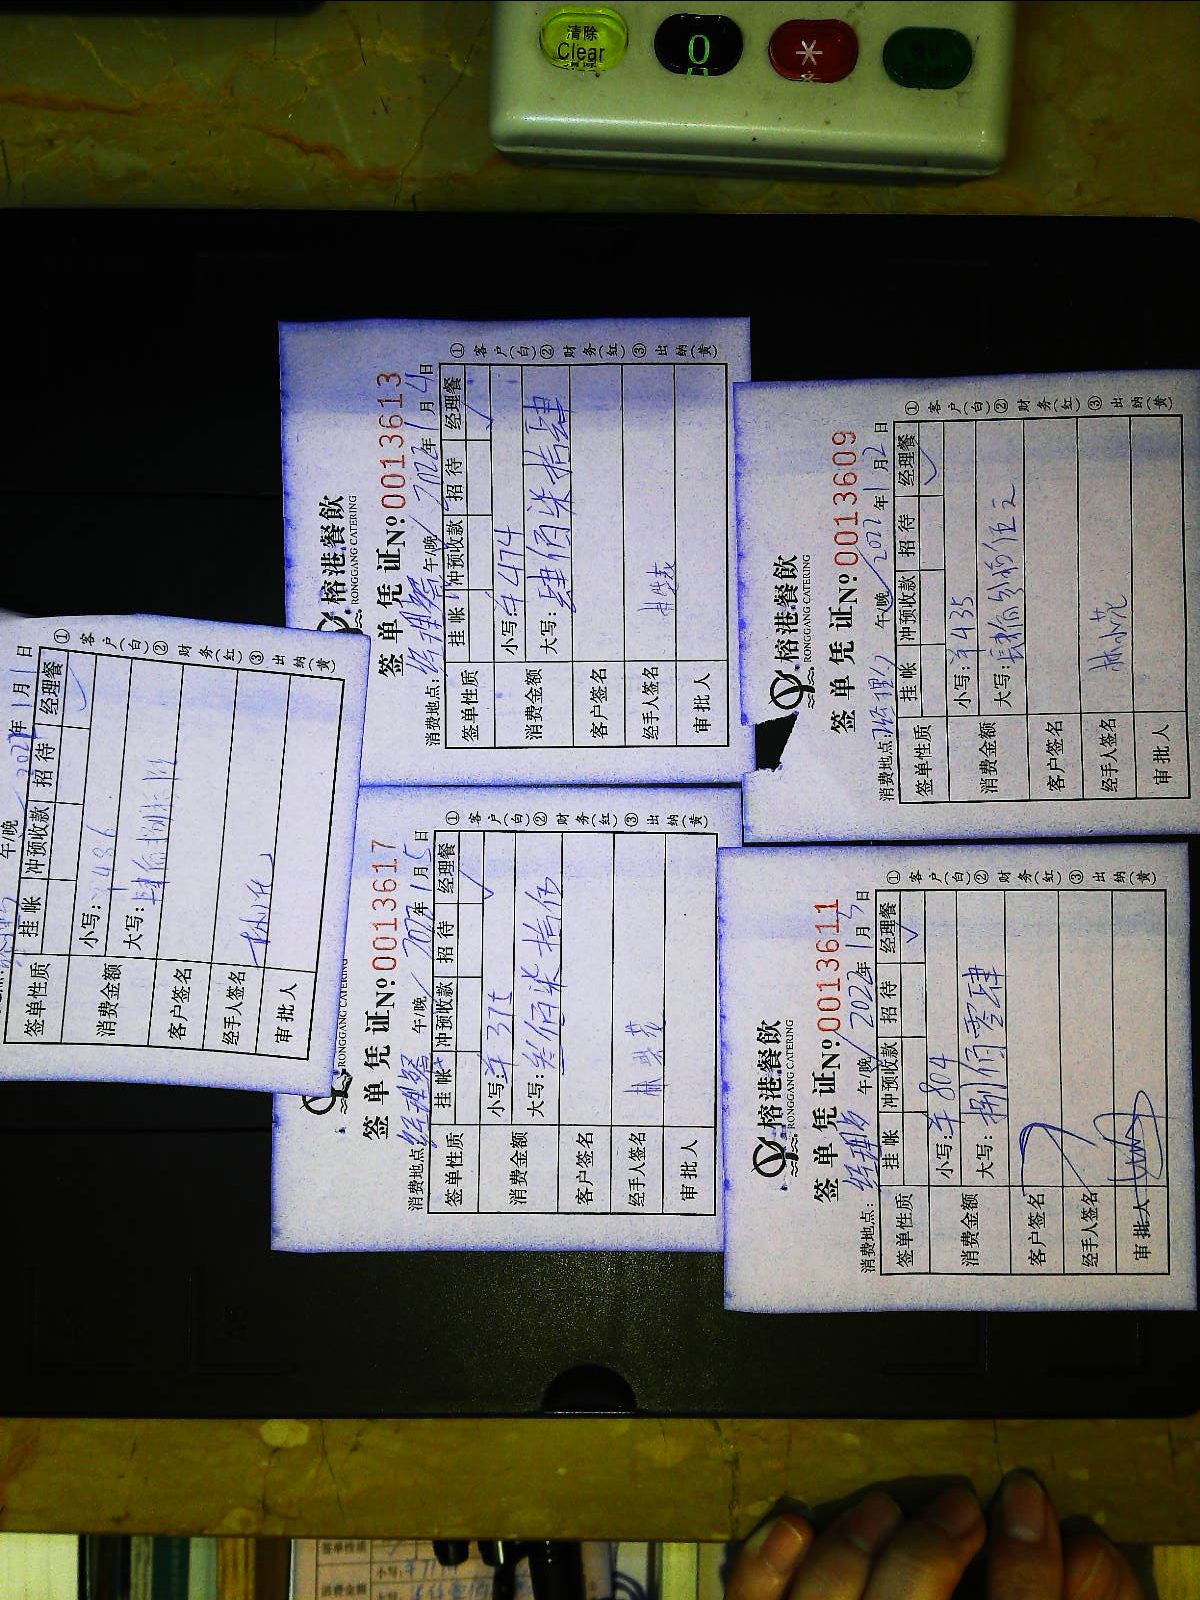 清除
Clear
0
*
榕港餐飲
RONGGANG CATERING
签单凭证 № 0013613
消费地点: 经理餐 午/晚 2022年1月4日
签单性质 挂帐 冲预收款 招待 经理餐 ✓
消费金额 小写: ¥474
大写: 肆佰柒拾肆
客户签名
经手人签名
审批人
① 客户(白) ② 财务(红) ③ 出纳(黄)
榕港餐飲
RONGGANG CATERING
签单凭证 № 0013609
消费地点: 经理 午/晚 2022年1月2日
签单性质 挂帐 冲预收款 招待 经理餐 ✓
消费金额 小写: ¥435
大写: 肆佰叁拾伍元
客户签名
经手人签名
审批人
① 客户(白) ② 财务(红) ③ 出纳(黄)
午/晚 202 年1月1日
签单性质 挂帐 冲预收款 招待 经理餐 ✓
消费金额 小写: ¥486
大写: 肆佰捌拾
客户签名
经手人签名
审批人
① 客户(白) ② 财务(红) ③ 出纳(黄)
RONGGANG CATERING
签单凭证 № 0013617
消费地点: 经理餐 午/晚 2022年1月5日
签单性质 挂帐 冲预收款 招待 经理餐 ✓
消费金额 小写: ¥375
大写: 叁佰柒拾伍
客户签名
经手人签名 林
审批人
① 客户(白) ② 财务(红) ③ 出纳(黄)
榕港餐飲
RONGGANG CATERING
签单凭证 № 0013611
消费地点: 经理 午/晚 2022年1月3日
签单性质 挂帐 冲预收款 招待 经理餐 ✓
消费金额 小写: ¥804
大写: 捌佰零肆
客户签名
经手人签名
审批人
① 客户(白) ② 财务(红) ③ 出纳(黄)